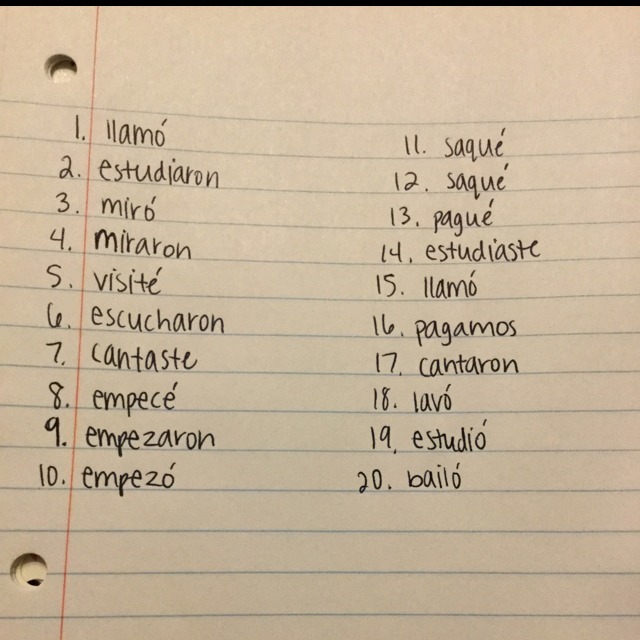 1. llamó
2. estudiaron
3. miró
4. miraron
5. visité
6. escucharon
7. cantaste
8. empecé
9. empezaron
10. empezó
11. saqué
12. saqué
13. pagué
14. estudiaste
15. llamó
16. pagamos
17. cantaron
18. lavó
19. estudió
20. bailó